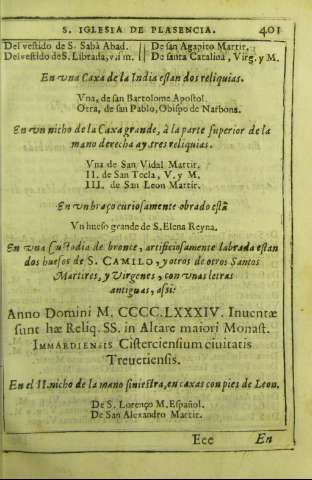 S. IGLESIA DE PLASENCIA. 401
Del vestido de S. Sabà Abad. De san Agapito Martir.
Del vestido de S. Librada, v. i m. De santa Catalina, Virg. y M.
En vna Caxa de la India estan dos reliquias.
Vna, de san Bartolome Apostol.
Otra, de san Pablo, Obispo de Narbona.
En vn nicho de la Caxa grande, à la parte superior de la
mano derecha ay tres reliquias.
Vna de San Vidal Martir.
II. de San Tecla, V. y M.
III. de San Leon Martir.
En vn braço curiosamente obrado està
Vn hueso grande de S. Elena Reyna.
En vna Custodia de bronce, artificiosamente labrada estan
dos huesos de S. CAMILO, y otros de otros Santos
Martires, y Virgenes, con vnas letras
antiguas, assi:
Anno Domini M, CCCC. LXXXIV. Inventæ
sunt hæ Reliq. SS. in Altare maiori Monast.
IMMARDIENSIS Cisterciensium ciuitatis
Treuerensis.
En el II. nicho de la mano siniestra, en caxas con pies de Leon.
De S. Lorenço M. Español.
De San Alexandro Martir.
Eee En